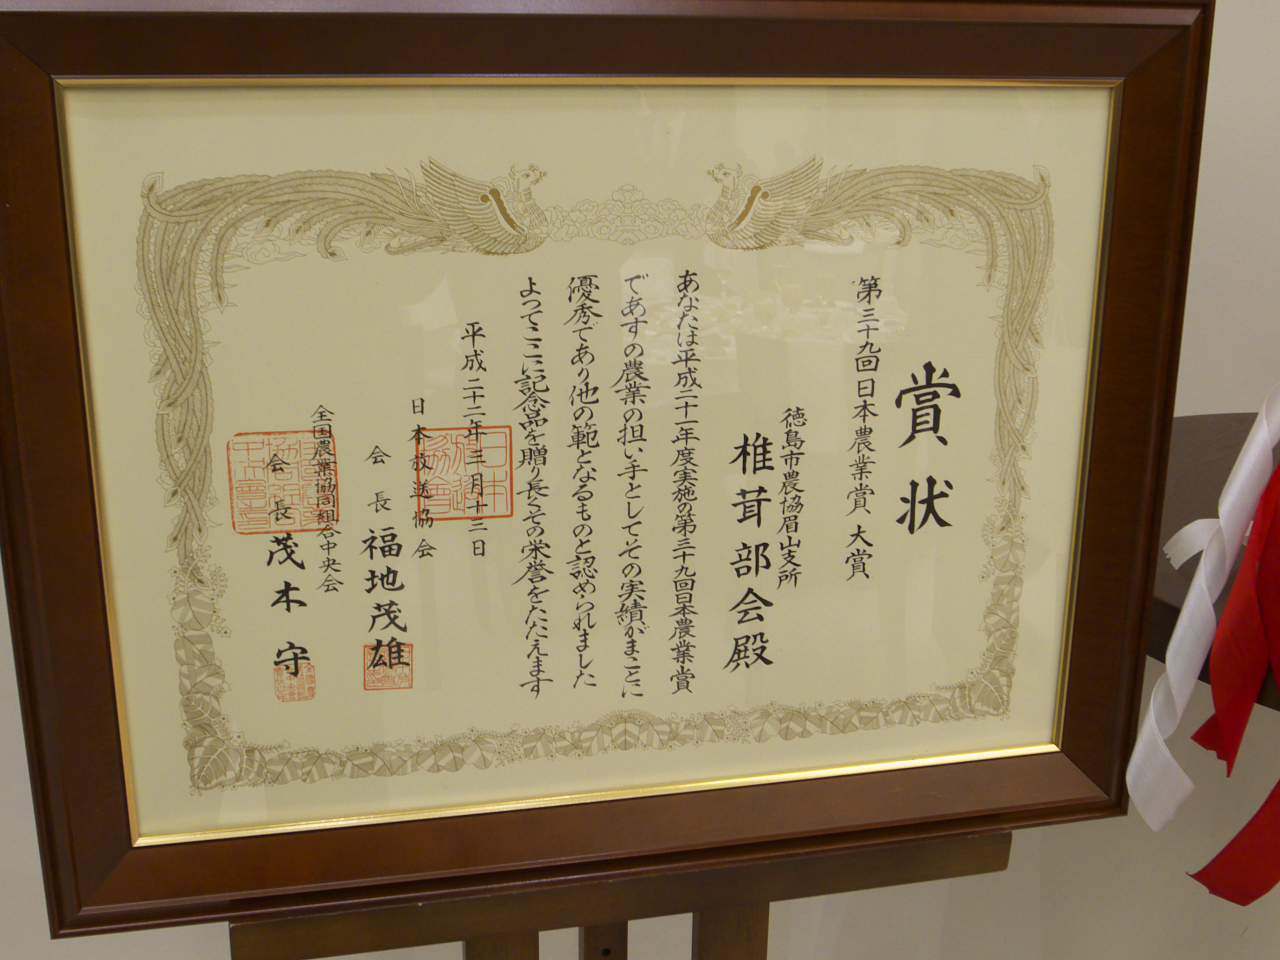 賞状
第三十九回日本農業賞 大賞
徳島市農協眉山支所
椎茸部会殿
あなたは平成二十一年度実施の第三十九回日本農業賞
であすの農業の担い手としてその実績がまことに
優秀であり他の範となるものと認められました
よってここに記念品を贈り長くその栄誉をたたえます
平成二十二年三月十三日
日本放送協会
会長 福地茂雄
全国農業協同組合中央会
会長 茂木守